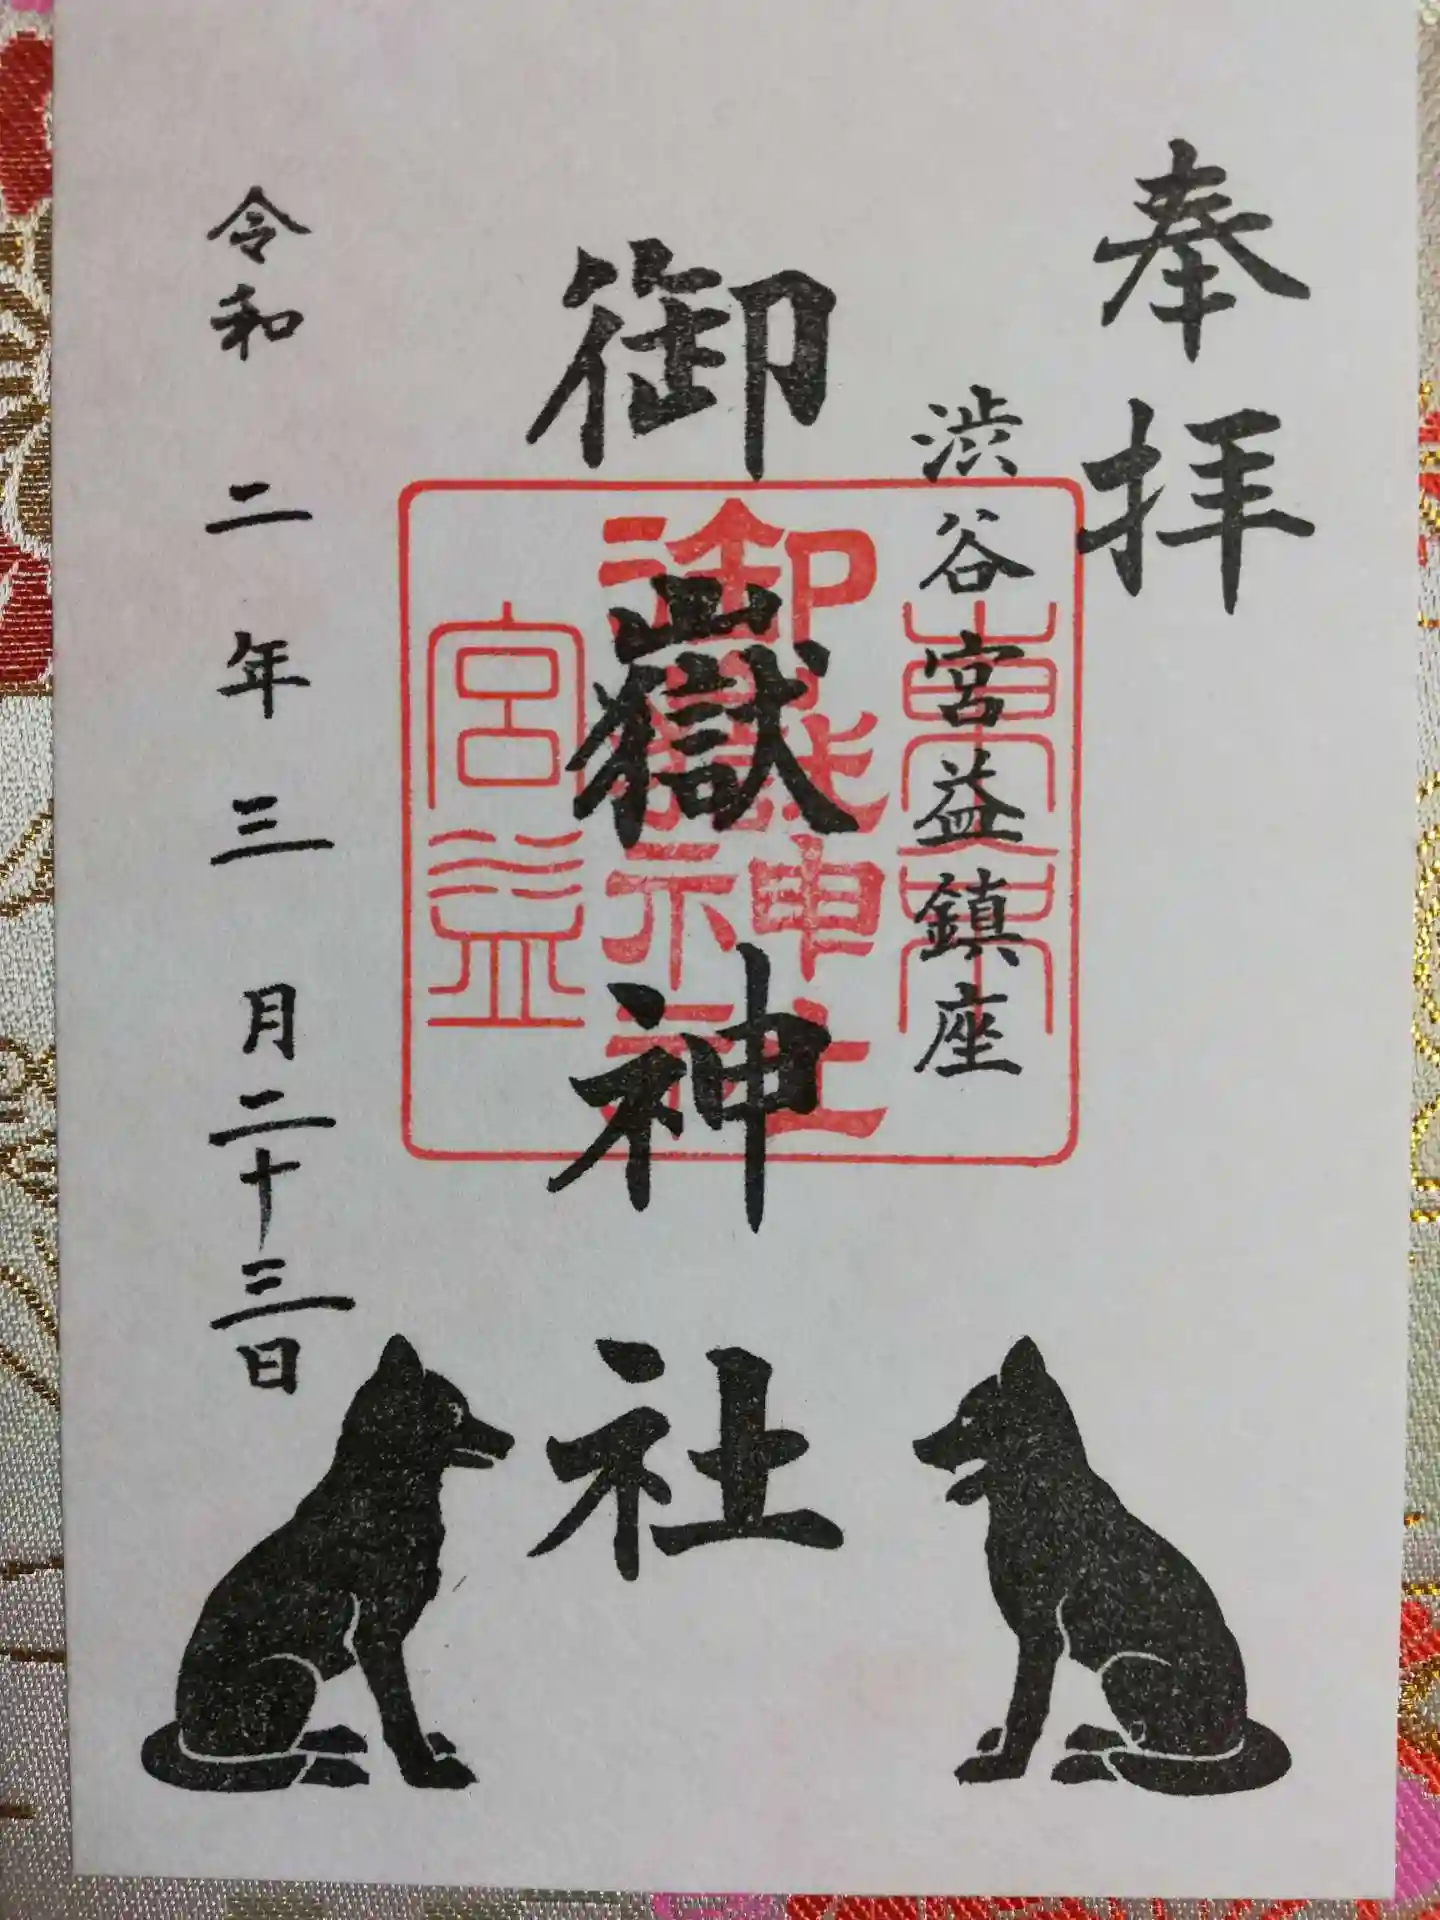 奉拝
渋谷宮益鎮座
御嶽神社
令和二年三月二十三日
東京
御嶽神社
宮益